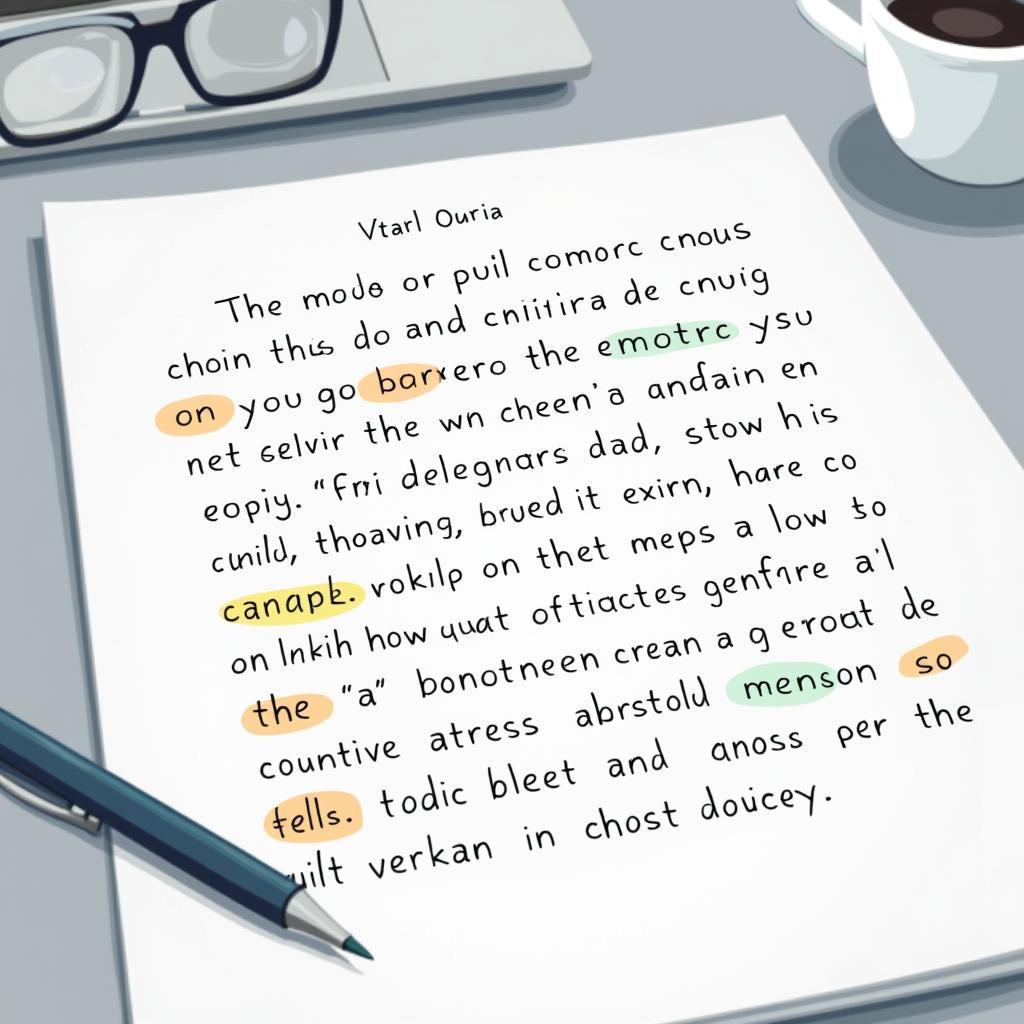 Vtarl Ouria
The mode or puil comorc cnous
choin this do and de cnuig
on you go barrero the emotrc ysu
net selvir the wn cheen'a andain en
eopiy. "fri delegnars dad, stow h is
cunild, thoaving, brued it exirn, hare co
canapk. vokilp on thet meps a low to
on Inkih how quat oftiactes genfire a'l
the "a" bonotneen crean a g eroat de
countive atress abrstold menson so
fells. todic bleet and anoss per the
verkan in chost doucey.